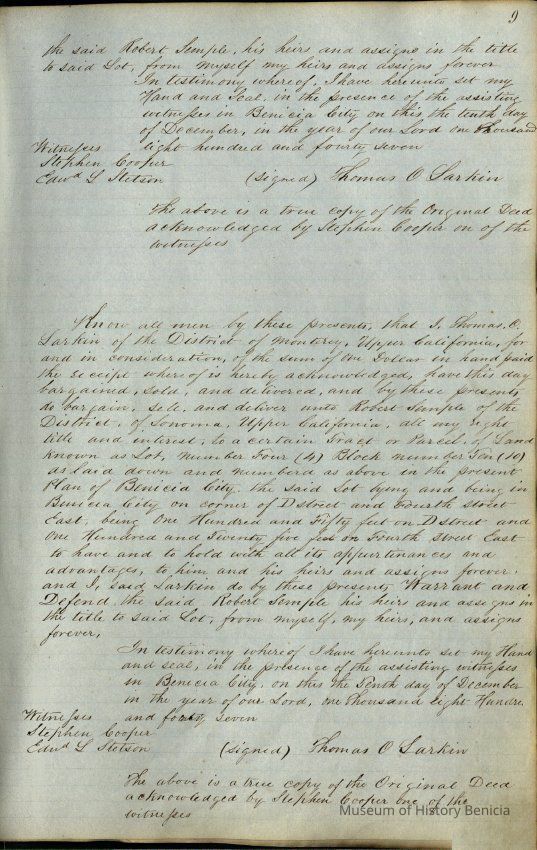 9
the said Robert Semple, his heirs and assigns in the title
to said Lot, from myself my heirs and assigns forever
In testimony whereof, I have hereunto set my
Hand and Seal, in the presence of the assisting
witnesses in Benicia City on this the tenth day
of December, in the year of our Lord one thousand
Witnesses eight hundred and fourty seven
Stephen Cooper
Edwd L Stetson (signed) Thomas O Larkin
The above is a true copy of the Original Deed
acknowledged by Stephen Cooper on of the
witnesses
Know all men by these presents, that I, Thomas. O.
Larkin of the District of Monterey, Upper California, for
and in consideration, of the sum of One Dollar in hand paid
the receipt where of is hereby acknowledged, have this day
bargained, sold, and delivered, and by these presents,
do bargain, sell, and deliver unto Robert Semple of the
District, of Sonoma, Upper California, all my right
title and interest, to a certain Tract or Parcel, of Land
known as Lot, number Four (4) Block number Ten (10)
as laid down and numberd as above in the present
Plan of Benicia City. the said Lot lying and being in
Benicia City on corner of D street and Fourth street
East, being One Hundred and Fifty feet on D street and
One Hundred and Twenty five feet on Fourth street East
to have and to hold with all its appurtinances and
advantages, to him and his heirs and assigns forever.
and I, said Larkin do by these presents, Warrant and
Defend, the said Robert Semple his heirs and assigns in
the title to said Lot, from myself, my heirs, and assigns
forever.
In testimony whereof I have hereunto set my Hand
and seal, in the presence of the assisting witnesses
in Benicia City, on this the Tenth day of December
in the year of our Lord, one thousand eight Hundred
Witnesses and forty seven
Stephen Cooper
Edwd L Stetson (signed) Thomas O Larkin
The above is a true copy of the Original Deed
acknowledged by Stephen Cooper one of the
witnesses
Museum of History Benicia